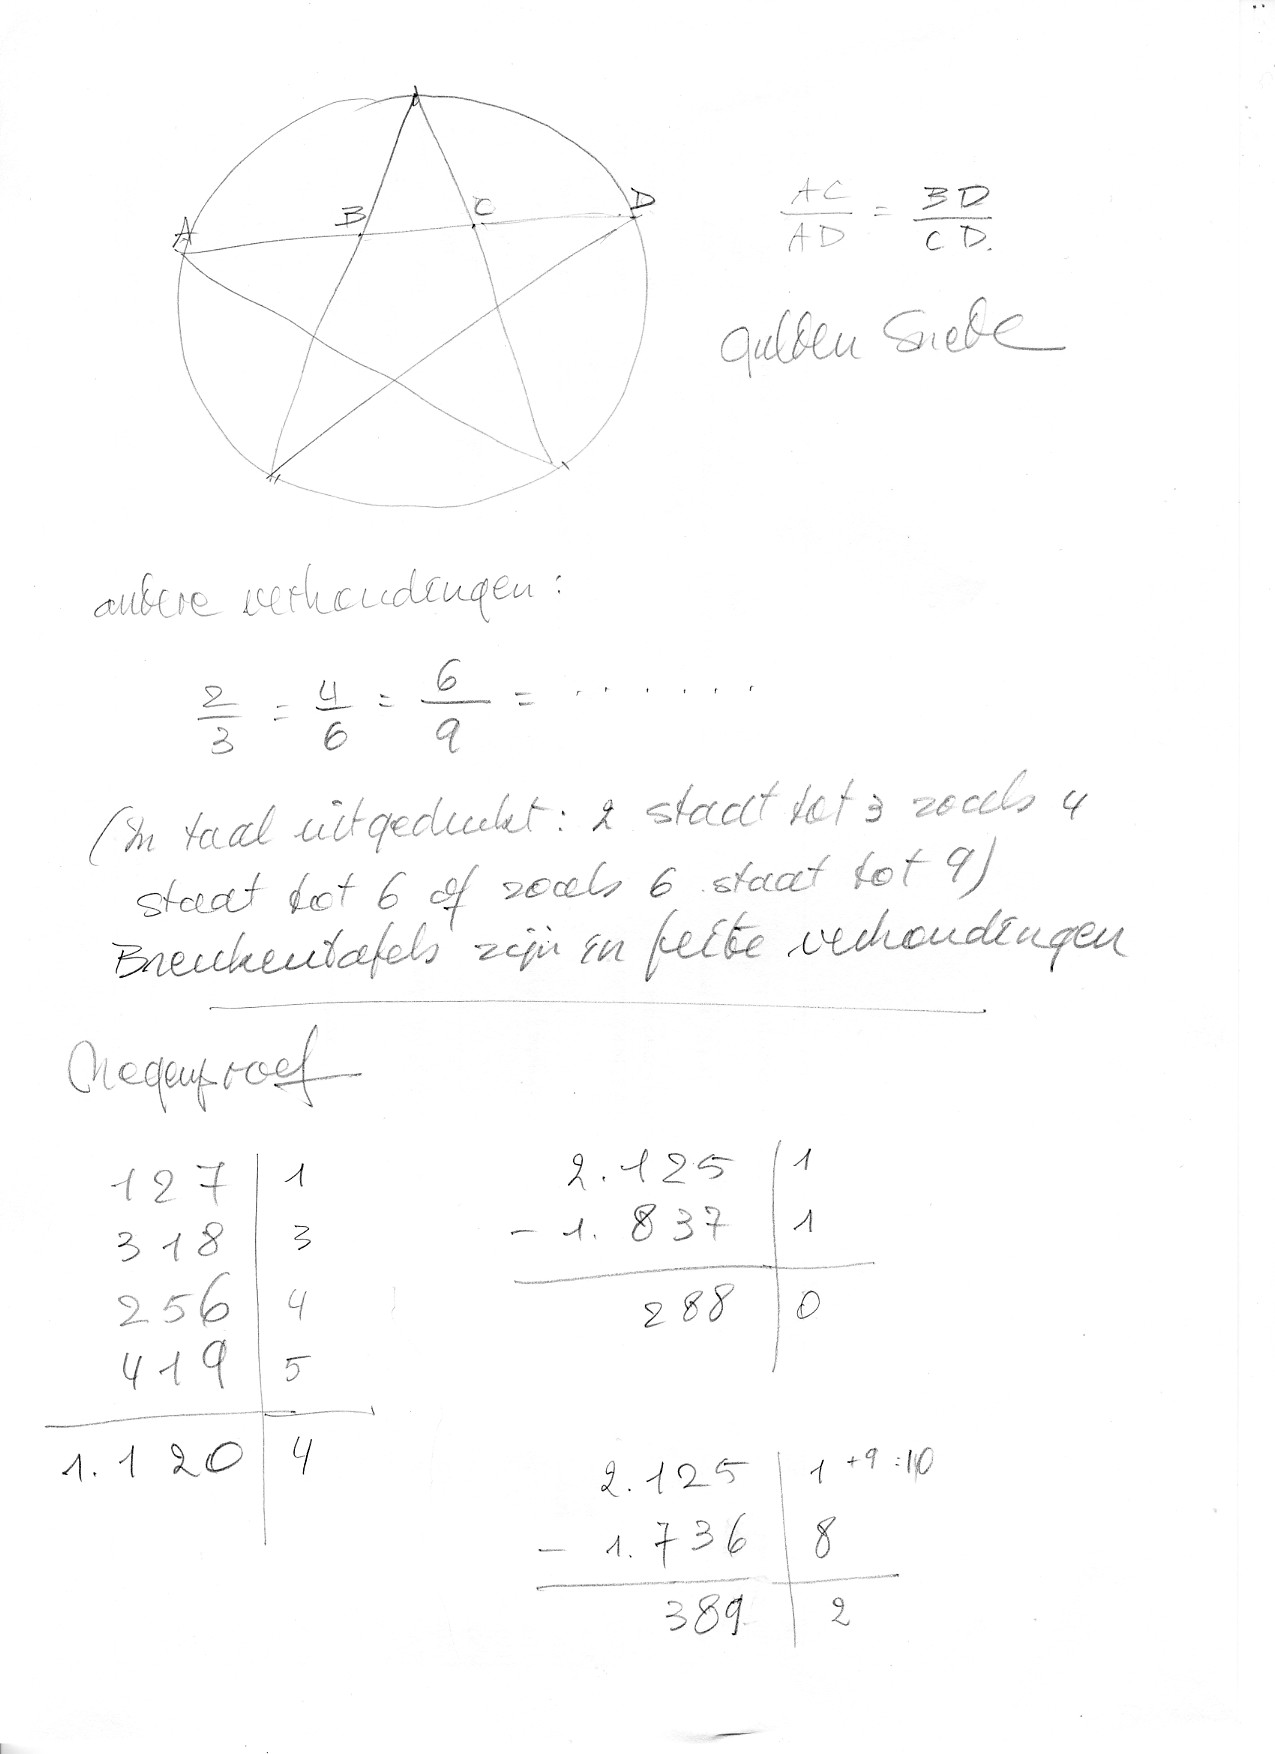 A B C D
AC/AD = BD/CD.
gulden snede
andere verhoudingen:
2/3 = 4/6 = 6/9 = .......
(In taal uitgedrukt: 2 staat tot 3 zoals 4
staat tot 6 of zoals 6 staat tot 9)
Breukentafels zijn in feite verhoudingen
Negenproef
127 | 1
318 | 3
256 | 4
419 | 5
1.120 | 4
2.125 | 1
- 1.837 | 1
288 | 0
2.125 | 1 +9 = 10
- 1.736 | 8
389 | 2